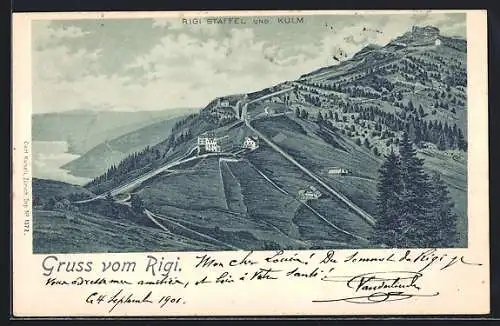 RIGI STAFFEL UND KULM
Carl Künzli, Zürich Dep. No 1272.
Gruss vom Rigi.
Mon cher Louis! Du Sommet du Rigi je
vous adresse une amitié, et bois à Votre santé!
Ce 4 Septembre 1901.